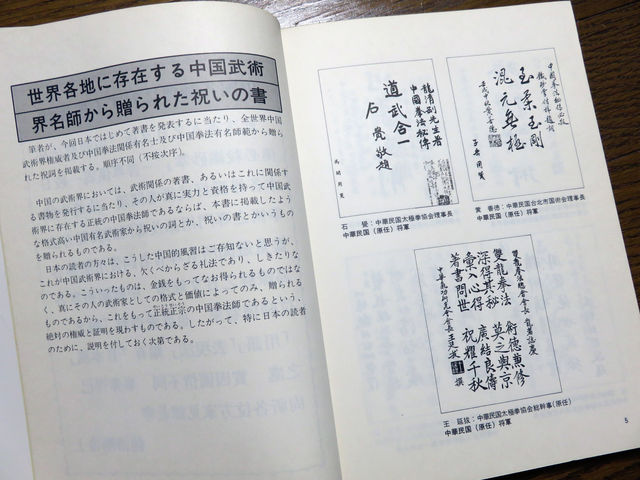 世界各地に存在する中国武術
界名師から贈られた祝いの書
筆者が、今回日本ではじめて著書を発表するに当たり、全世界中国
武術界権威者及び中国拳法関係有名士及び中国拳法有名師範から贈ら
れた祝詞を掲載する。順序不同（不按次序）。
中国の武術界においては、武術関係の著書、あるいはこれに関係す
る書物を発行するに当たり、その人が真に実力と資格を持って中国武
術に存在する正統の中国拳法師であるならば、本書に掲載したよう
な格式高い中国有名武術家から祝いの詞とか、祝いの書とかいうもの
を贈られるものである。
日本の読者の方々は、こうした中国的風習はご存知ないと思うが、
これが中国武術界における、欠くべからざる礼法であり、しきたりな
のである。こういったものは、金銭をもってなお得られるものではな
く、真にその人の武術家としての格式と価値によってのみ、贈られる
ものであるから、これをもって正統正宗の中国拳法師であるという、
絶対の権威と証明を現わすものである。したがって、特に日本の読者
のために、説明を付しておく次第である。
龍清剛先生著
中國拳法秘傳
道武合一
石覺敬題
石　覺：中華民国太極拳協会理事長
中華民国（原任）将軍
玉柔玉剛
混元無極
黄　善徳：中華民国台北市国術会理事長
中華民国（原任）将軍
雙龍拳法　衍德兼修
深得其秘　莫之與京
彙入心得　廣結良儔
著書問世　祝耀千秋
王　延拔：中華民国太極拳協会総幹事（原任）
中華民国（原任）将軍
5